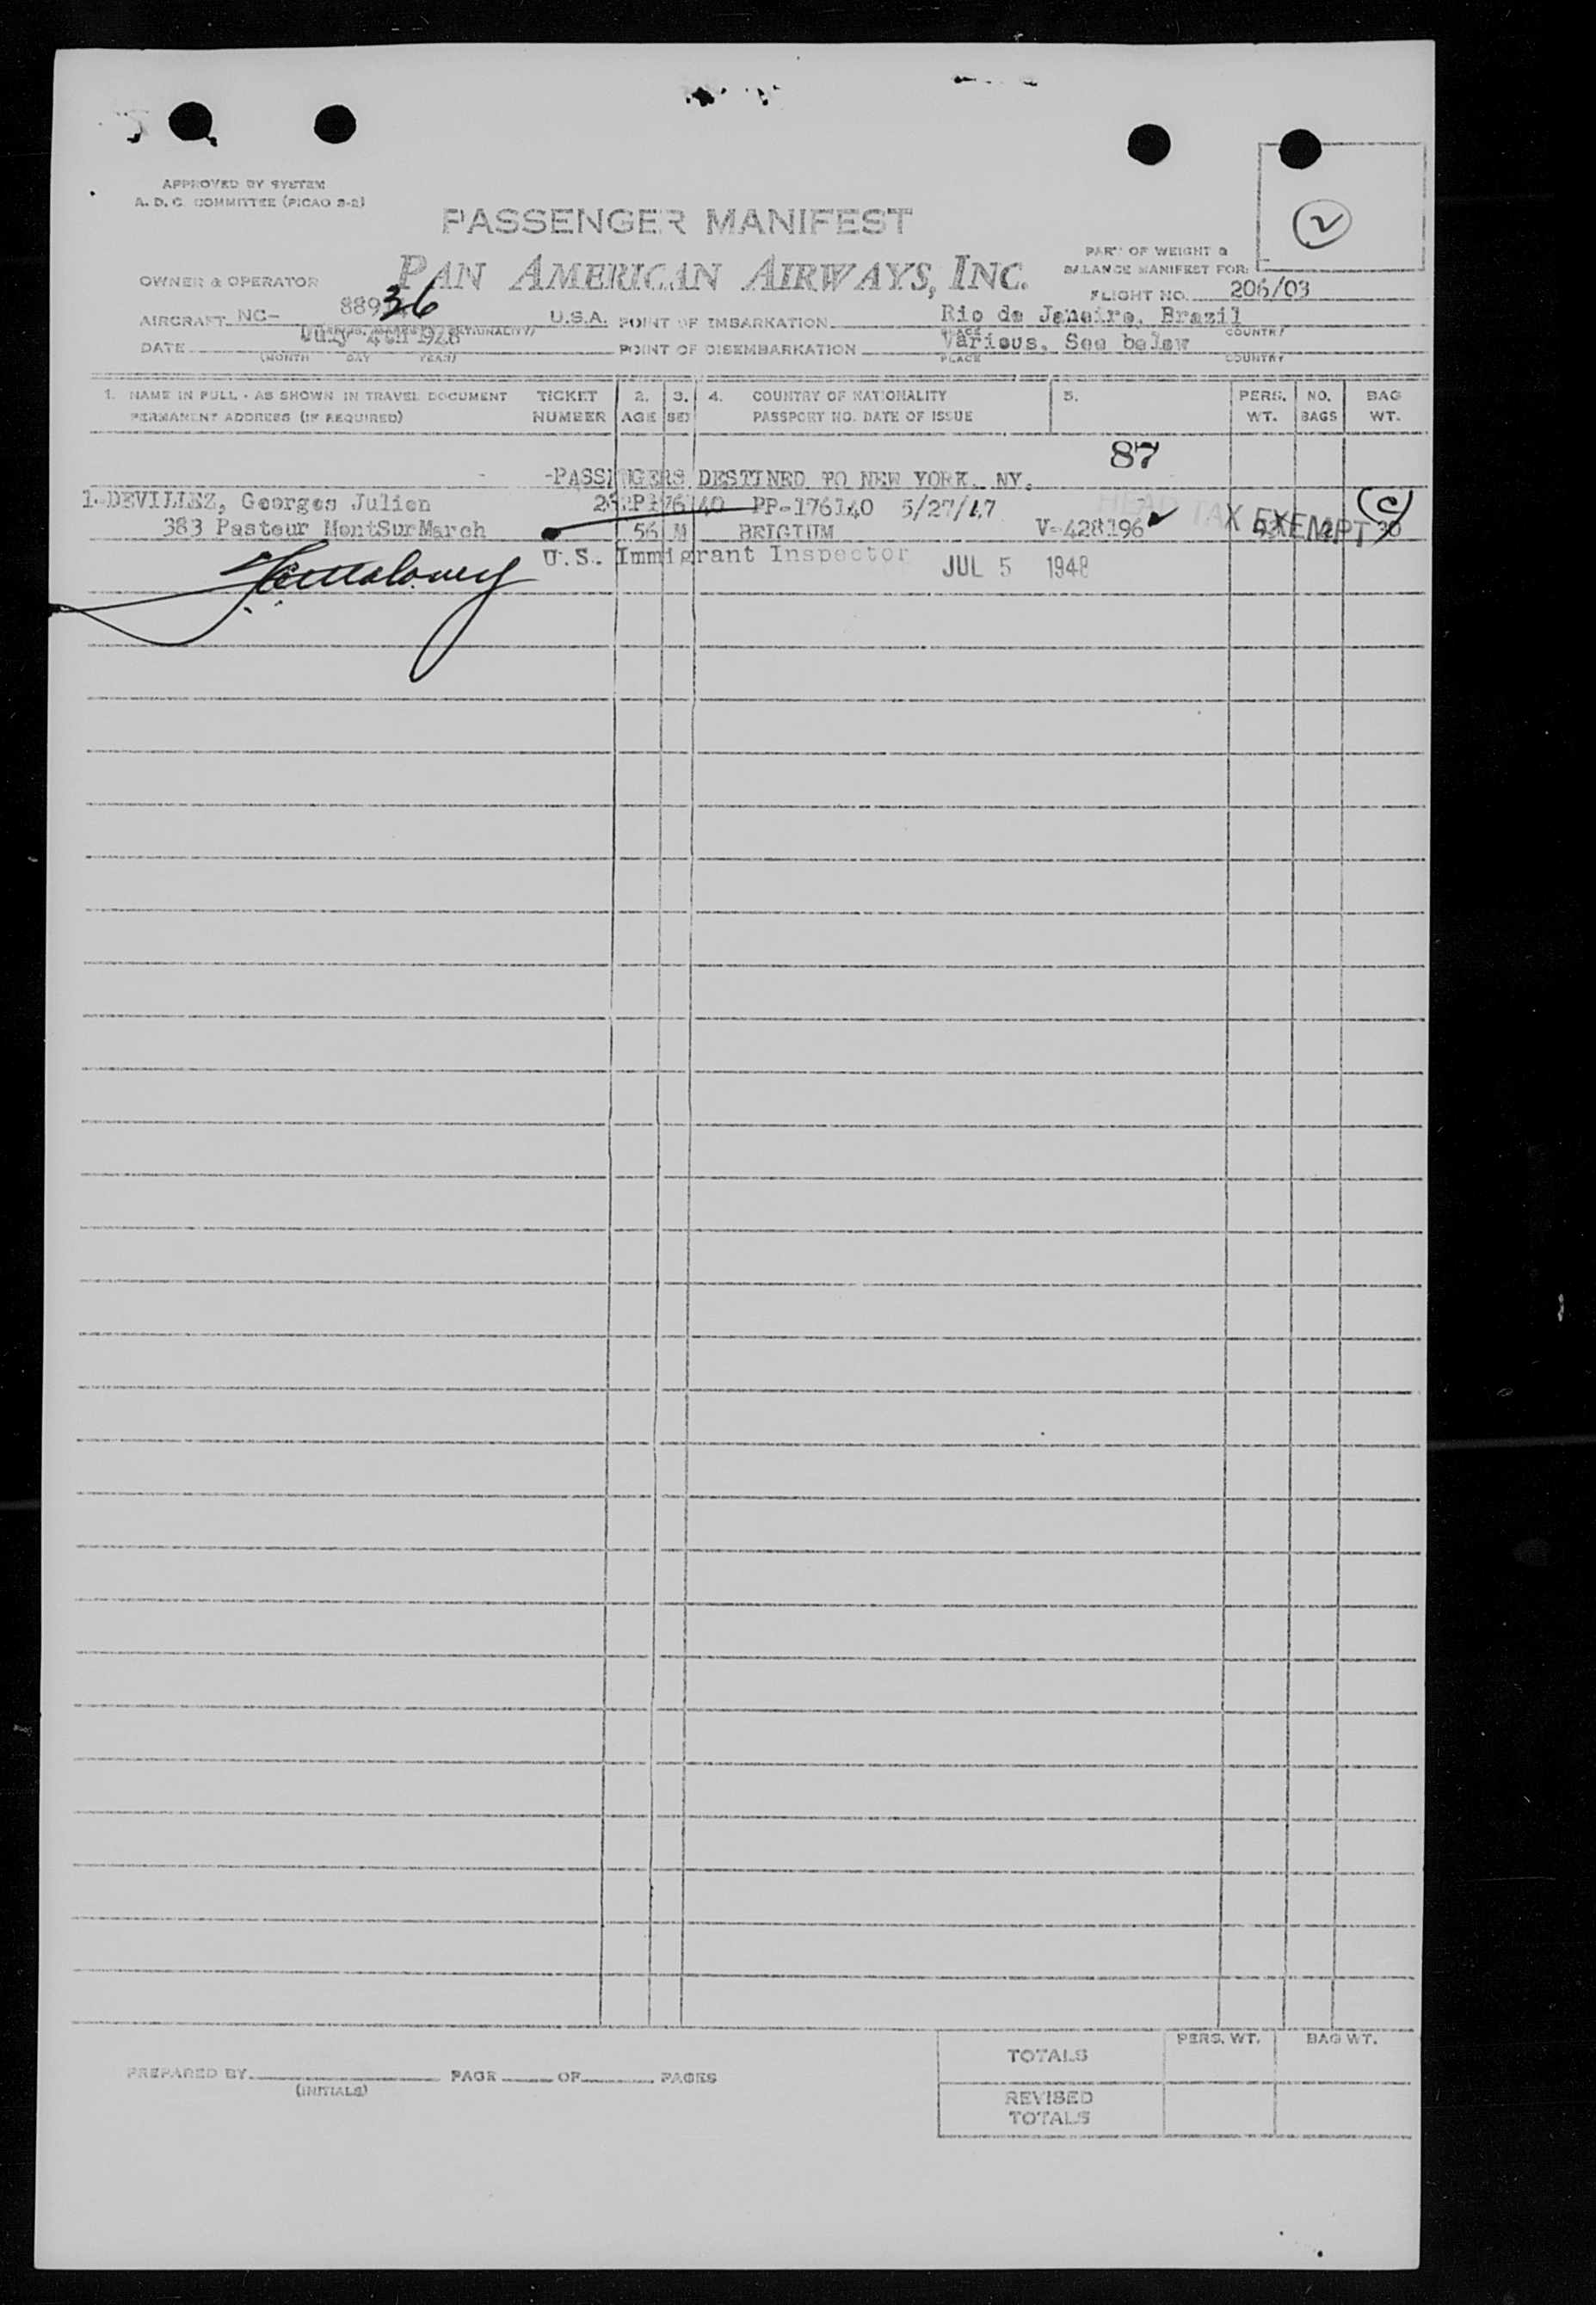 APPROVED BY SYSTEM
A. D. C. COMMITTEE (PICAO S-2)
2
PASSENGER MANIFEST
PART OF WEIGHT &
BALANCE MANIFEST FOR:
OWNER & OPERATOR PAN AMERICAN AIRWAYS, INC.
FLIGHT NO. 206/03
AIRCRAFT NC- 88936 U.S.A. POINT OF EMBARKATION Rio de Janeiro, Brazil
PLACE COUNTRY
DATE July 4th 1948 POINT OF DISEMBARKATION Various, See below
(MONTH DAY YEAR) PLACE COUNTRY
1. NAME IN FULL - AS SHOWN IN TRAVEL DOCUMENT TICKET 2. 3. 4. COUNTRY OF NATIONALITY 5. PERS. NO. BAG
PERMANENT ADDRESS (IF REQUIRED) NUMBER AGE SEX PASSPORT NO. DATE OF ISSUE WT. BAGS WT.
87
-PASSENGERS DESTINED TO NEW YORK, NY.
1. DEVILLEZ, Georges Julien PP-176140 5/27/47 HEAD TAX EXEMPT
383 Pasteur MontSurMarch 56 M BELGIUM V-428196
U.S. Immigrant Inspector JUL 5 1948
PREPARED BY PAGE OF PAGES
(INITIALS)
PERS. WT. BAG WT.
TOTALS
REVISED
TOTALS